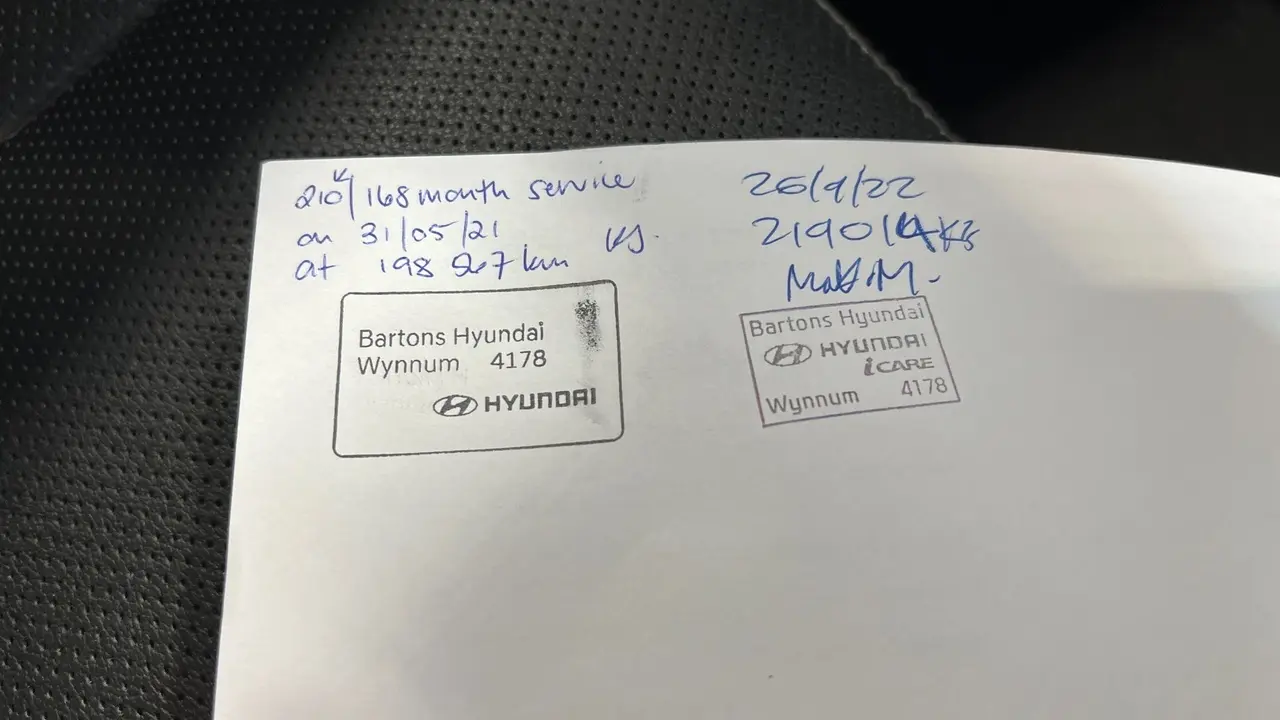 210K/168 month service
on 31/05/21
at 198 567 km
Bartons Hyundai
Wynnum 4178
HYUNDAI
26/9/22
219014 KS
Bartons Hyundai
HYUNDAI
iCARE
Wynnum 4178